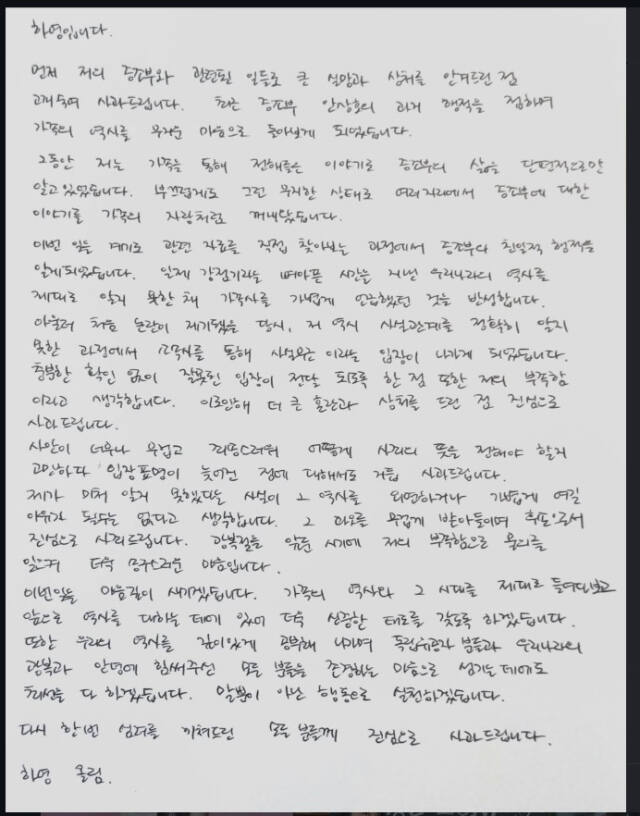 하영입니다.
먼저 저의 증조부와 관련된 일들로 큰 실망과 상처를 안겨드린 점
고개숙여 사과드립니다. 최근 증조부 안상호의 과거 행적을 접하며
가족의 역사를 무거운 마음으로 돌아보게 되었습니다.
그동안 저는 가족을 통해 전해들은 이야기로 증조부의 삶을 단편적으로만
알고 있었습니다. 부끄럽게도 그런 무지한 상태로 여러 자리에서 증조부에 대한
이야기를 가족의 자랑처럼 꺼내왔습니다.
이번 일을 계기로 관련 자료를 직접 찾아보는 과정에서 증조부의 친일적 행적을
알게되었습니다. 일제 강점기라는 뼈아픈 시간을 지닌 우리나라의 역사를
제대로 알지 못한 채 가족사를 가볍게 언급했던 것을 반성합니다.
아울러 처음 논란이 제기됐을 당시, 저 역시 사실관계를 정확히 알지
못한 과정에서 소속사를 통해 사실무근 이라는 입장이 나가게 되었습니다.
충분한 확인 없이 잘못된 입장이 전달 되도록 한 점 또한 저의 부족함
이라고 생각합니다. 이로인해 더 큰 혼란과 상처를 드린 점 진심으로
사과드립니다.
사안이 너무나 무겁고 죄송스러워 어떻게 사죄의 뜻을 전해야 할지
고민하다 입장표명이 늦어진 점에 대해서도 거듭 사과드립니다.
제가 미처 알지 못했다는 사실이 그 역사를 외면하거나 가볍게 여길
이유가 될수는 없다고 생각합니다. 그 과오를 무겁게 받아들이며 후손으로서
진심으로 사죄드립니다. 광복절을 앞둔 시기에 저의 부족함으로 물의를
일으켜 더욱 송구스러운 마음입니다.
이번일을 마음깊이 새기겠습니다. 가족의 역사와 그 시대를 제대로 들여다보고
앞으로 역사를 대하는 데에 있어 더욱 신중한 태도를 갖도록 하겠습니다.
또한 우리의 역사를 깊이있게 공부해 나가며 독립유공자 분들과 우리나라의
광복과 안녕에 힘써주신 모든 분들을 존경하는 마음으로 섬기는 데에도
최선을 다 하겠습니다. 말뿐이 아닌 행동으로 실천하겠습니다.
다시 한번 심려를 끼쳐드린 모든 분들께 진심으로 사과드립니다.
하영 올림.